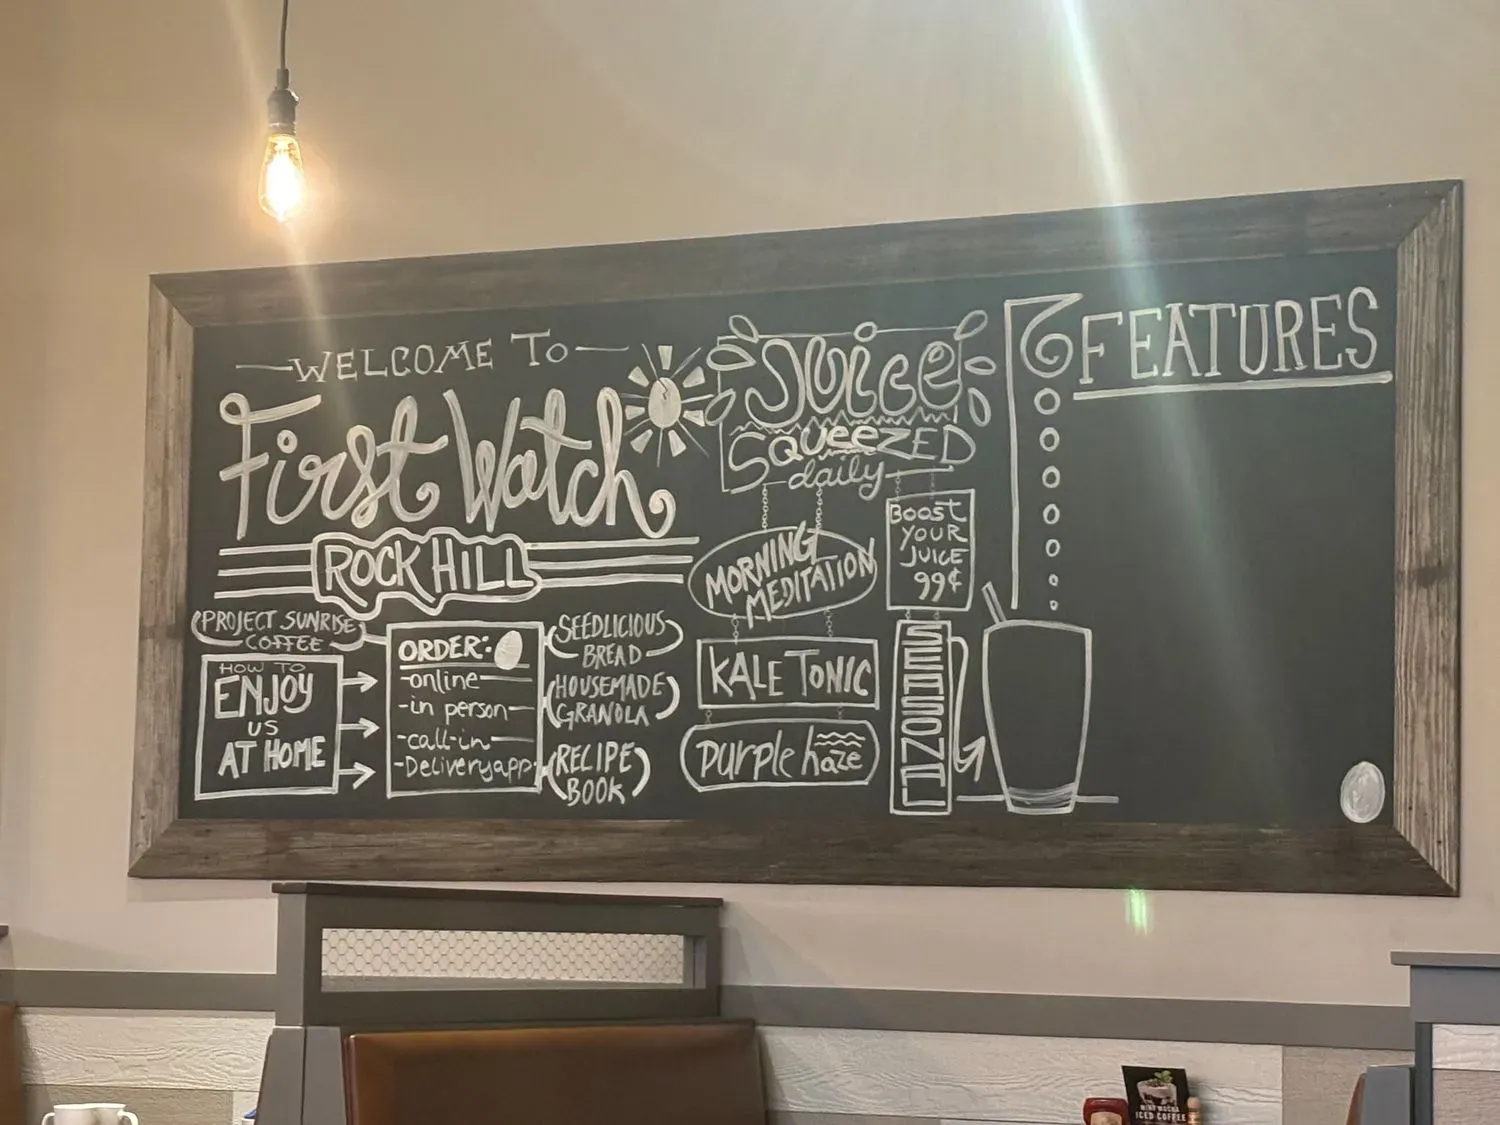 WELCOME TO
First Watch
ROCK HILL
PROJECT SUNRISE
COFFEE
HOW TO
ENJOY
US
AT HOME
ORDER:
-online
-in person
-call-in
-Delivery app
SEEDLICIOUS
BREAD
HOUSEMADE
GRANOLA
RECIPE
BOOK
Juice
SQUEEZED
daily
MORNING
MEDITATION
KALE TONIC
purple haze
BOOST
YOUR
JUICE
99¢
SEASONAL
FEATURES
MINT MOCHA
ICED COFFEE